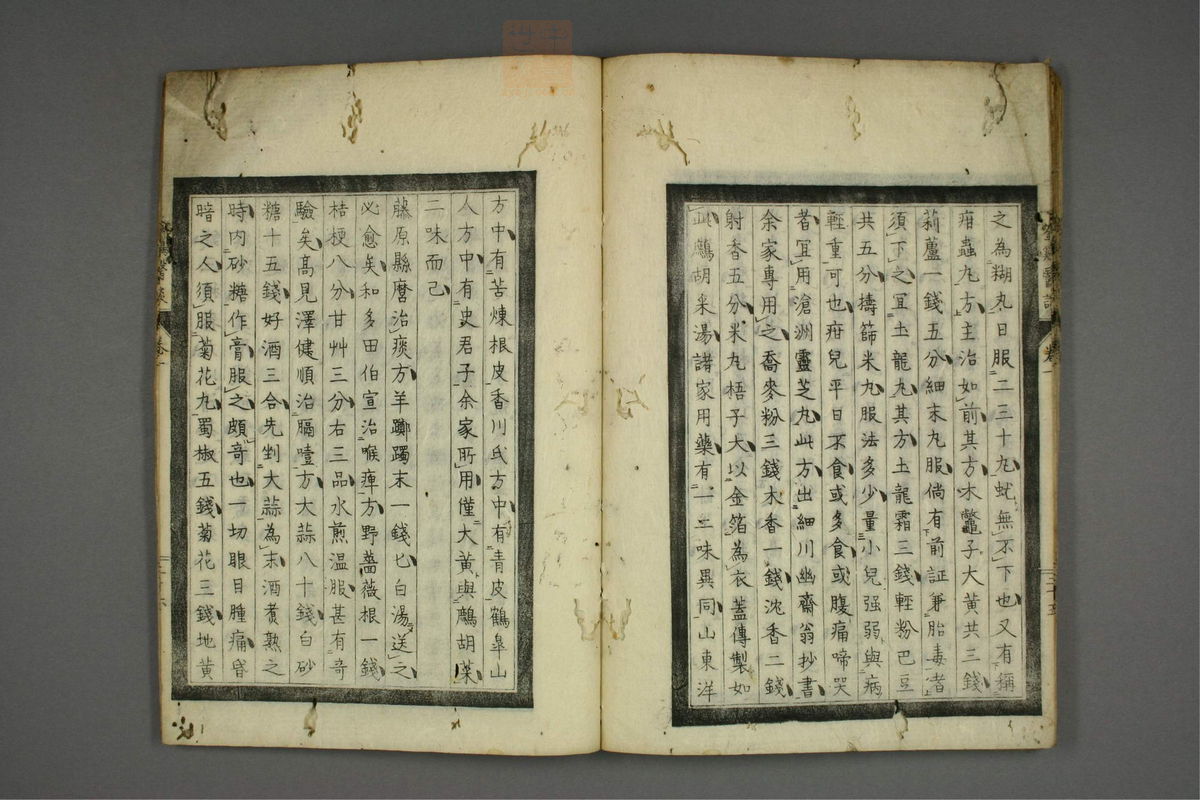 之為糊丸日服二三十丸蚘無不下也又有稱
疳蟲丸方主治如前其方木鼈子大黄共三錢
莉蘆一錢五分細末丸服倘有前証兼胎毒者
須下之冝土龍丸其方土龍霜三錢輕粉巴豆
共五分擣篩米丸服法多少量小兒强弱與病
輕重可也疳兒平日不食或多食或腹痛啼哭
者冝用滄洲靈芝丸此方出細川幽齋翁抄書
余家專用之喬麥粉三錢木香一錢沈香二錢
射香五分米丸梧子大以金箔為衣蓋傳製如
此鷓胡菜湯諸家用藥有一二味異同山東洋
方中有苦煉根皮香川氏方中有青皮鶴皐山
人方中有史君子余家所用僅大黄與鷓胡菜
二味而己
藤原縣麿治痰方羊躑躅末一錢匕白湯送之
必愈矣和多田伯宣治喉痺方野薔薇根一錢
桔梗八分甘艸三分右三品水煎温服甚有奇
驗矣高見澤健順治膈噎方大蒜八十錢白砂
糖十五錢好酒三合先剉大蒜為末酒煮熟之
時内砂糖作膏服之頗奇也一切眼目腫痛昏
暗之人須服菊花丸蜀椒五錢菊花三錢地黄